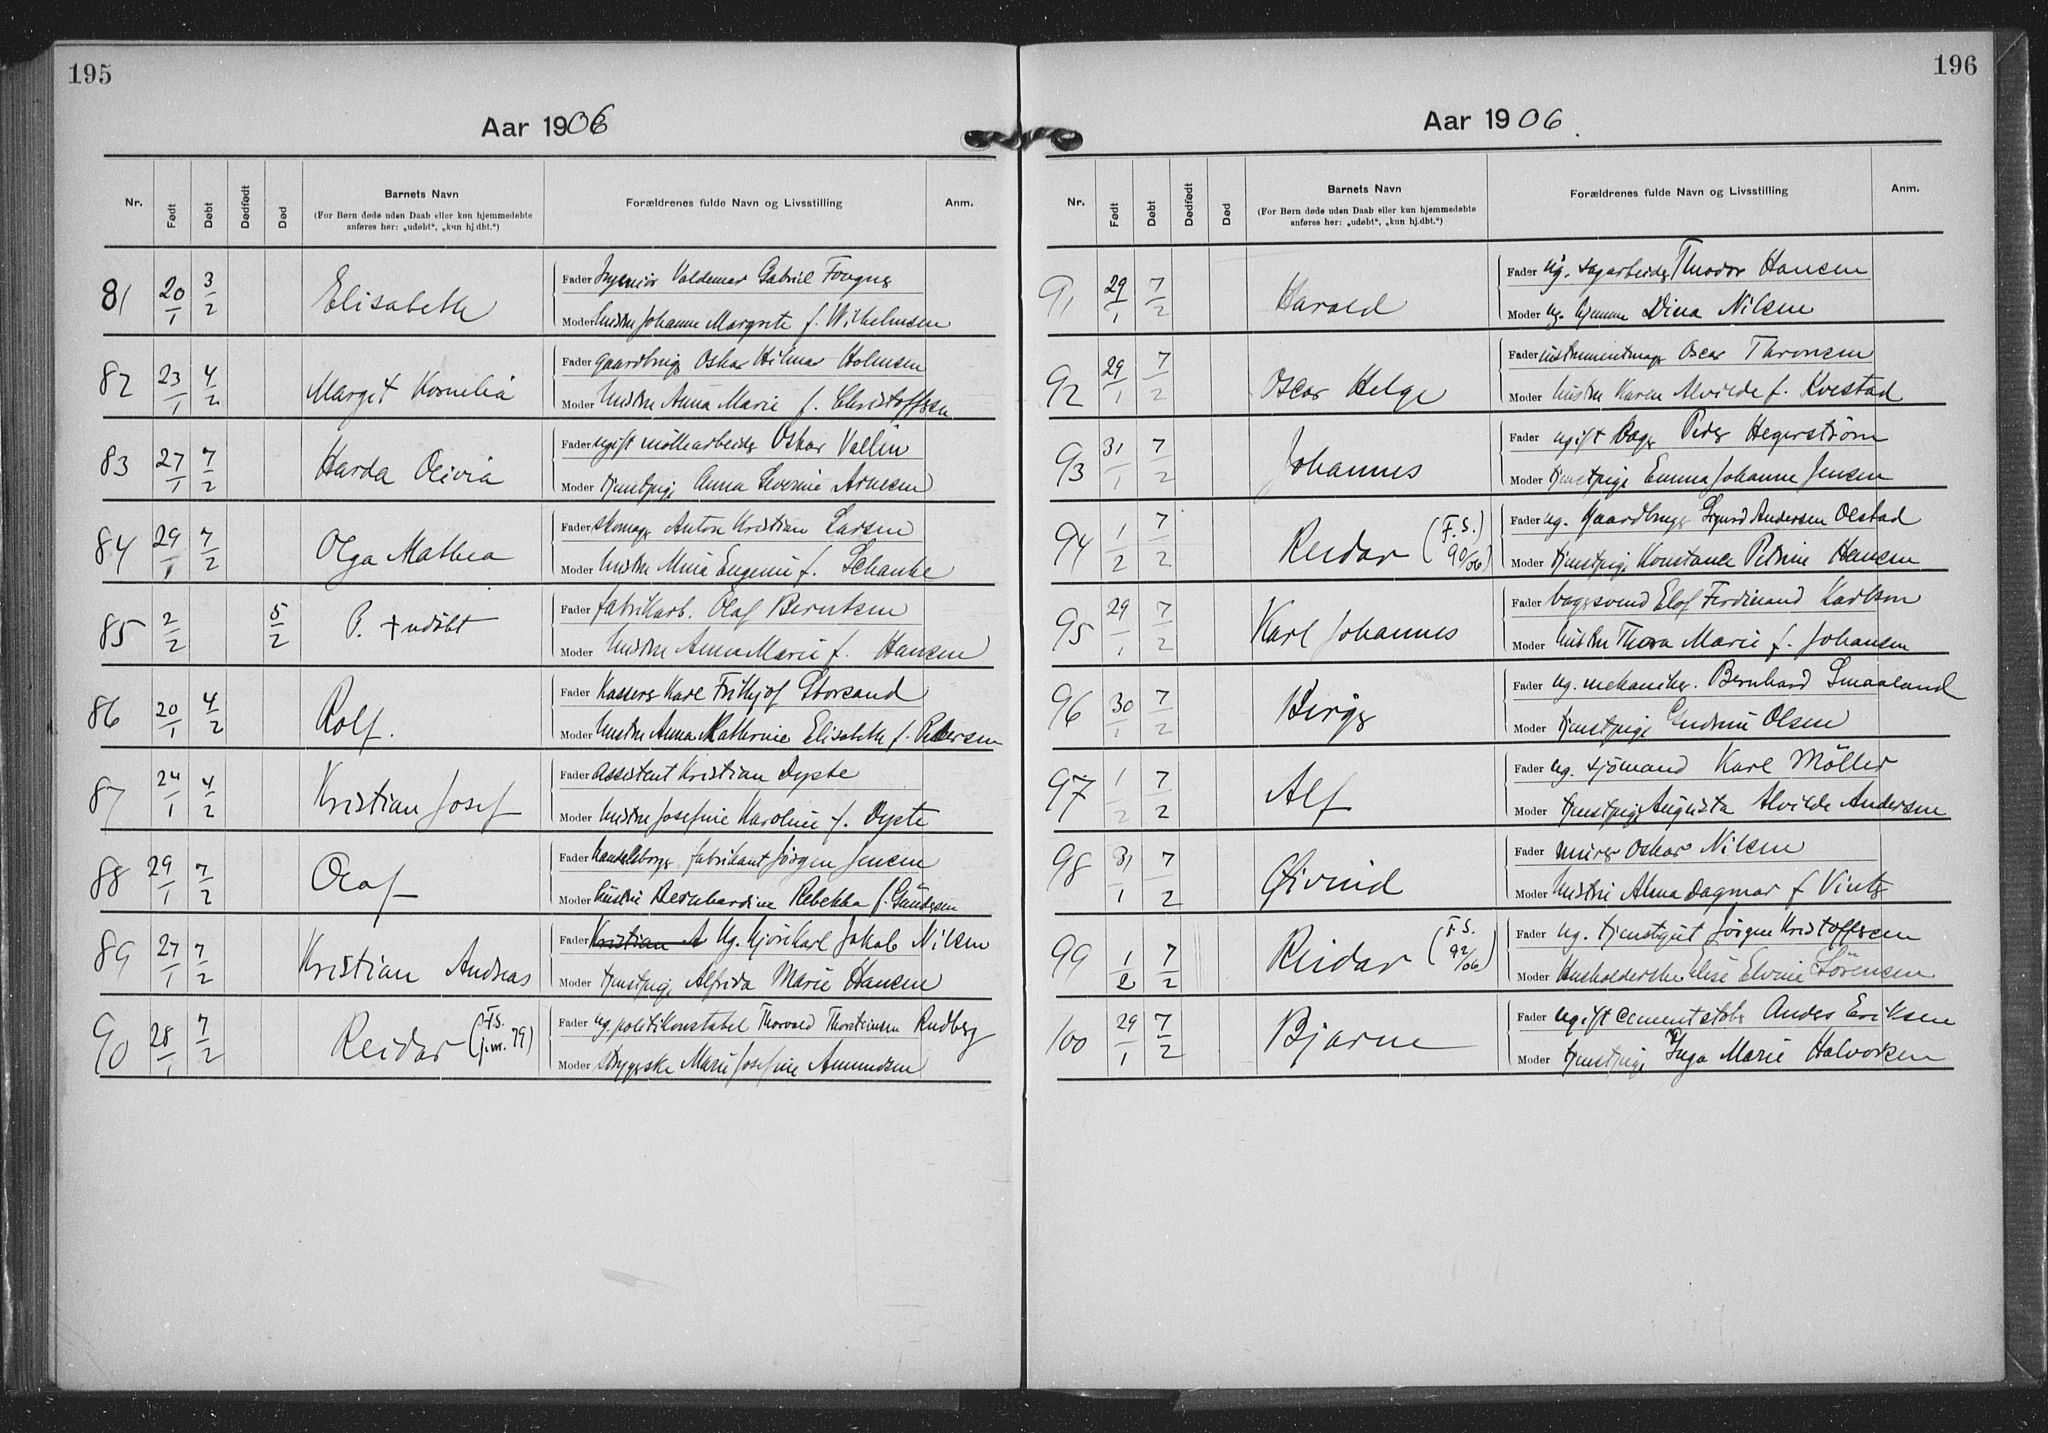 195
Aar 1906
Nr. Født Døbt Dødfødt Død Barnets Navn Forældrenes fulde Navn og Livsstilling Anm.
(For Børn døde uden Daab eller kun hjemmedøbte
anføres her: „udøbt“, „kun hj.dbt.“)
Fader Ingeniør Valdemar Gabriel Fougner
81 20/1 3/2 Elisabeth
Moder hustru Johanne Margrete f. Wilhelmsen
Fader gaardbrug Oskar Hilmar Holmsen
82 23/1 4/2 Margit Kornelia
Moder hustru Anna Marie f. Christoffsen
Fader ugift møllearbeider Oskar Vallin
83 27/1 7/2 Harda Olivia
Moder tjenstpige Anna Severine Arnesen
Fader skomag Anton Kristian Larsen
84 29/1 7/2 Olga Mathea
Moder hustru Mina Eugenie f. Schanke
Fader fabrikarb. Olaf Berntsen
85 2/2 5/2 P. + udöbt
Moder hustru Anna Marie f. Hansen
Fader Kasserer Karl Frithjof Storsand
86 20/1 4/2 Rolf.
Moder hustru Anna Kathrine Elisabeth f. Pedersen
Fader Assistent Kristian Dyste
87 24/1 4/2 Kristian Josef
Moder hustru Josefine Karoline f. Dyste
Fader handelsborger fabrikant Jörgen Jensen
88 29/1 7/2 Olaf
Moder hustru Bernhardine Rebekka f. Gundersen
Fader Kristian A Ug. kjörekarl Jakob Nilsen
89 27/1 7/2 Kristian Andreas
Moder tjenstpige Alfrida Marie Hansen
Fader ug. politikonstabel Thorvald Thorsteinsen Rudberg
90 28/1 7/2 Reidar (F.S. j.nr. 79)
Moder Syerske Marie Josefine Amundsen
196
Aar 1906.
Nr. Født Døbt Dødfødt Død Barnets Navn Forældrenes fulde Navn og Livsstilling Anm.
(For Børn døde uden Daab eller kun hjemmedøbte
anføres her: „udøbt“, „kun hj.dbt.“)
Fader Ug. sagarbeider Theodor Hansen
91 29/1 7/2 Harald
Moder ug. hjemme Dina Nilsen
Fader instrumentmager Oscar Thronsen
92 29/1 7/2 Oscar Helge
Moder hustru Karen Alvilde f. Kvestad
Fader ugift Bager Peder Hegerström
93 31/1 7/2 Johannes
Moder tjenstpige Emma Johanne Jensen
Fader ug. Gaardbruger Sigurd Andersen Olstad
94 1/2 7/2 Reidar (F.S. 90/06)
Moder tjenstpige Konstance Petrine Hansen
Fader bagersvend Elof Ferdinand Karlson
95 29/1 7/2 Karl Johannes
Moder hustru Thora Marie f. Johansen
Fader ug. mekaniker. Bernhard Smaaland
96 30/1 7/2 Birger
Moder tjenstpige Gudrun Olsen
Fader ug. sjömand Karl Möller
97 1/2 7/2 Alf
Moder tjenstpige Augusta Alvilde Andersen
Fader murer Oskar Nilsen
98 31/1 7/2 Øivind
Moder hustru Alma Dagmar f Vinter
Fader ug. tjenstgut Jörgen Kristoffersen
99 1/2 7/2 Reidar (F.S. 92/06)
Moder Husholderske Elise Elvine Sörensen
Fader ugift cementstöber Anders Eriksen
100 29/1 7/2 Bjarne
Moder tjenstpige Inga Marie Halvorsen